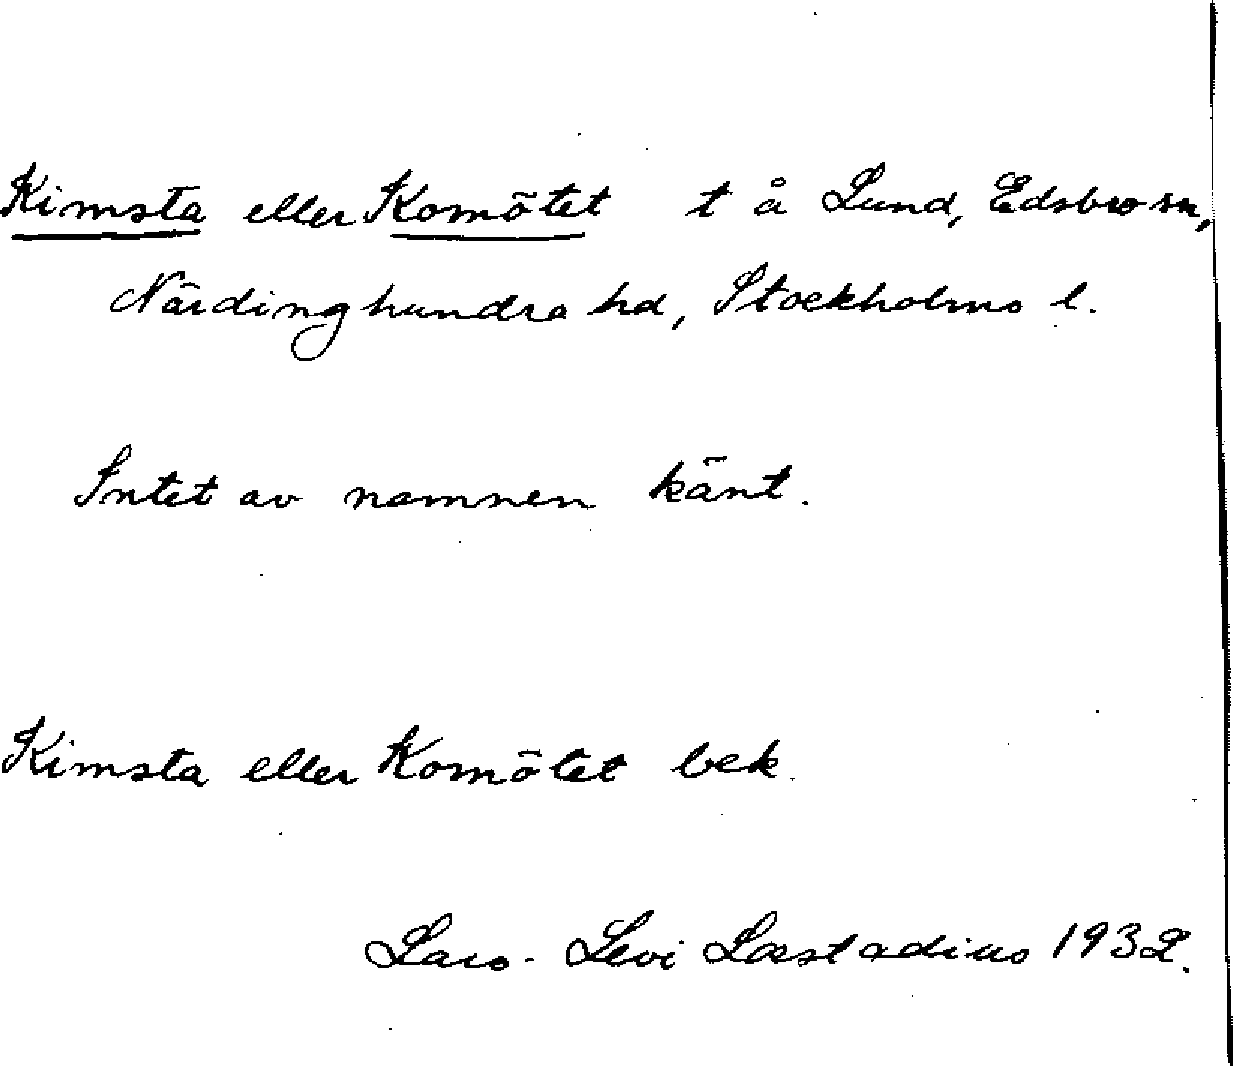 Kimsta eller Komötet t å Lund, Edsbro sn,
Närdinghundra hd, Stockholms l.
Intet av namnen känt.
Kimsta eller Komötet bek.
Lars-Levi Læstadius 1932.